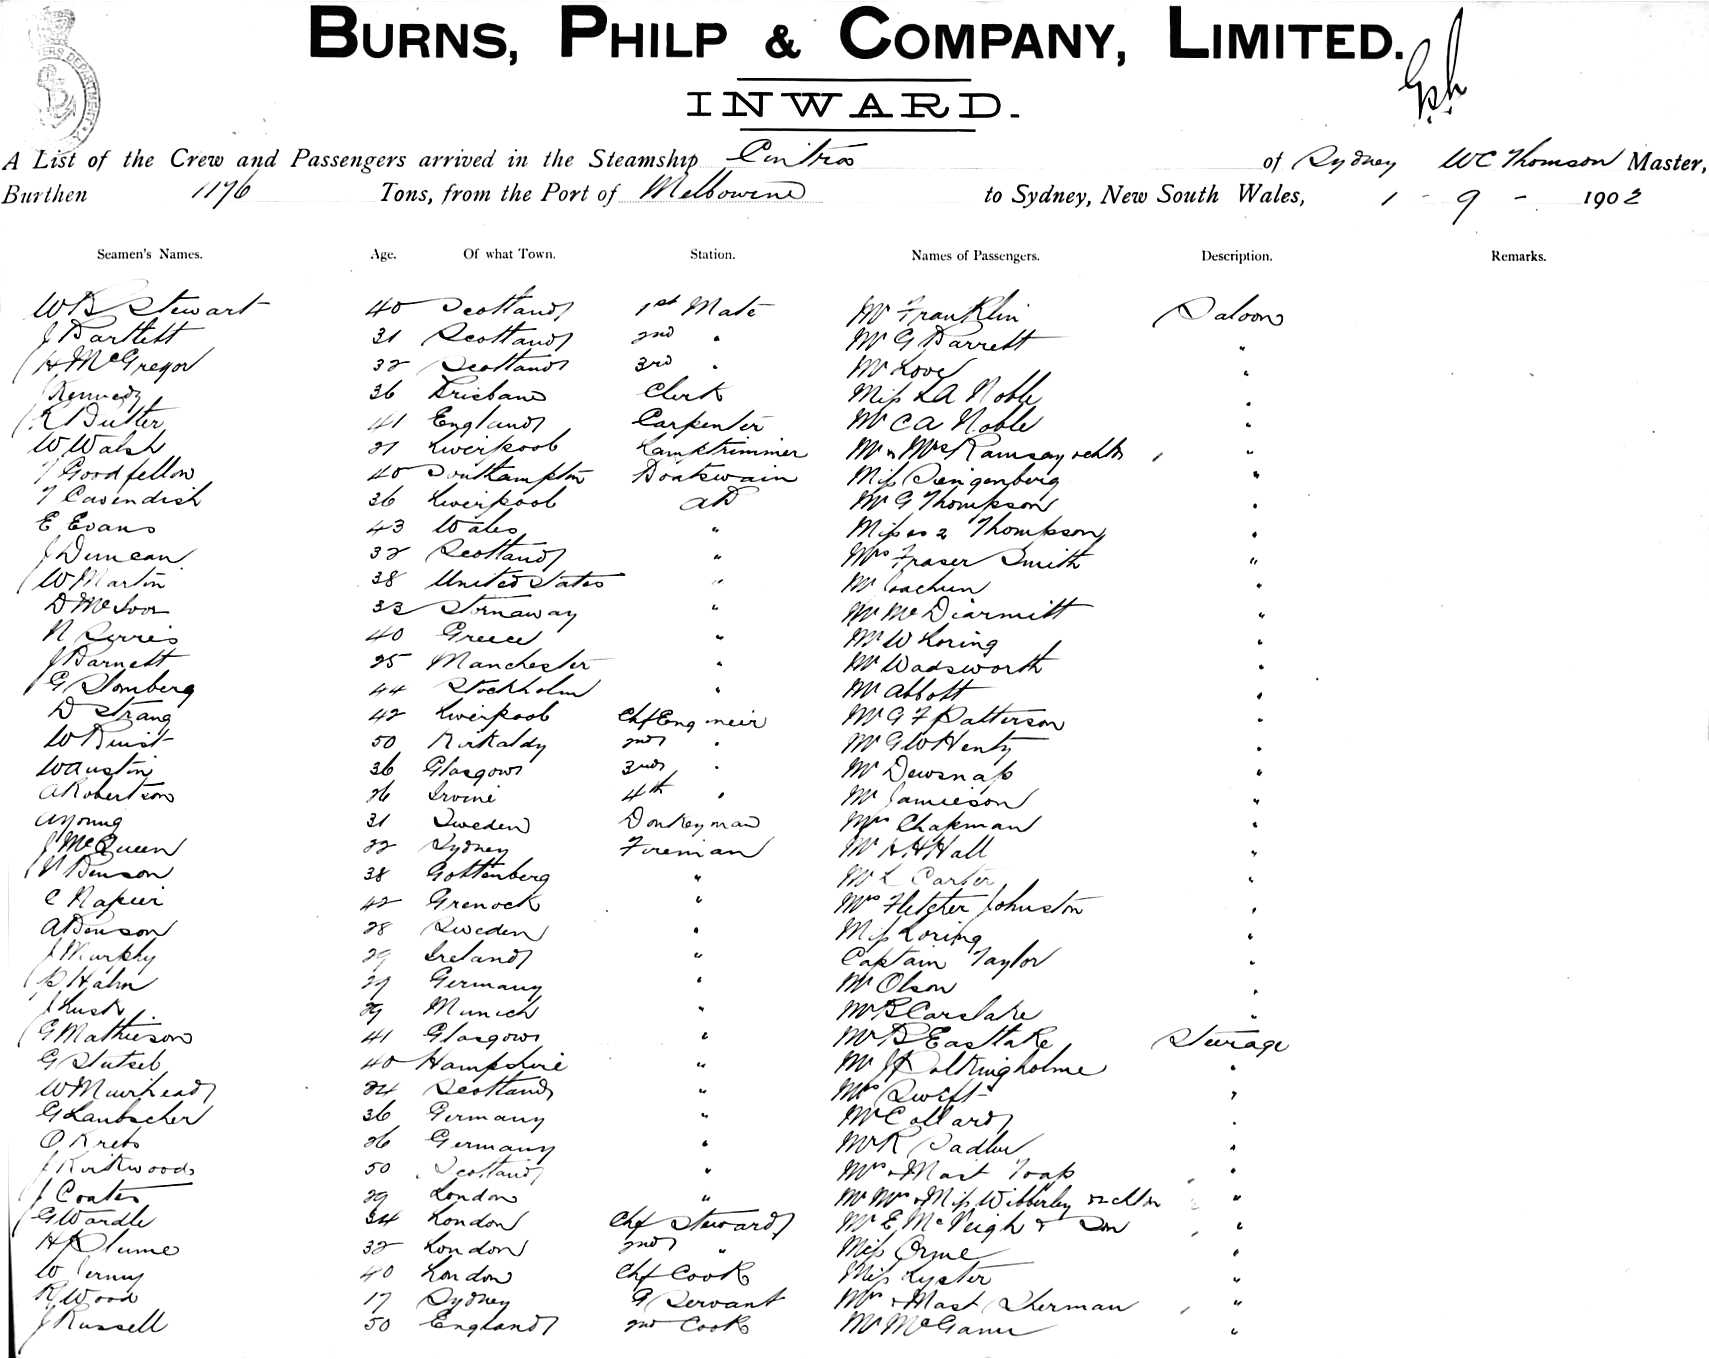 BURNS, PHILP & COMPANY, LIMITED.
INWARD.
A List of the Crew and Passengers arrived in the Steamship Cintra of Sydney W C Thomson Master,
Burthen 1176 Tons, from the Port of Melbourne to Sydney, New South Wales, 1 - 9 - 1902
Seamen's Names. Age. Of what Town. Station. Names of Passengers. Description. Remarks.
W B Stewart 40 Scotland 1st Mate Mr Franklin Saloon
J Bartlett 31 Scotland 2nd " Mr G Barrett "
H McGregor 32 Scotland 3rd " Mr Love "
J Kennedy 36 Brisbane Clerk Miss L A Noble "
R Butler 41 England Carpenter Mr C A Noble "
W Walsh 21 Liverpool Lamptrimmer Mr & Mrs Ramsay "
T Goodfellow 40 Southampton Boatswain Miss "
T Cavendish 36 Liverpool AB Mr G Thompson "
E Evans 43 Wales " Misses 2 Thompson "
J Duncan 32 Scotland " Mrs Fraser Smith "
W Martin 38 United States " Mr "
D McIvor 33 Stornaway " Mr McDiarmitt "
N 40 Greece " Mr W Loring "
J Barnett 25 Manchester " Mr Wadsworth "
G Stomberg 44 Stockholm " Mr Abbott "
D Strang 42 Liverpool Chf Engineir Mr G F Patterson "
W 50 Kirkaldy 2nd " Mr G W Henty "
W Austin 36 Glasgow 3rd " Mr Dewsnap "
A Robertson 26 Irvine 4th " Mr Jamieson "
A Young 31 Sweden Donkeyman Mrs Chapman "
J McQueen 22 Sydney Fireman Mr H H Hall "
V Benson 38 Gottenberg " Mr L Carter "
C Napier 42 Grenock " Mrs Fletcher Johnston "
A Benson 28 Sweden " Miss Loring "
J Murphy 29 Ireland " Captain Taylor "
P Hahn 29 Germany " Mr Olson "
J Lusk 29 Munich " Mr B Carslake "
G Mathieson 41 Glasgow " Mr B Eastlake Steerage
G Stutsel 40 Hampshire " Mr J Polkingholme "
W Muirhead 24 Scotland " Mrs Swift "
G Laubscher 36 Germany " Mr Collard "
O Krebs 26 Germany " Mr R Sadler "
J Kirkwood 50 Scotland " Mrs & Mast "
J Coates 29 London " Mr Mrs & Miss Wibberley "
G Wardle 34 London Chf Steward Mr E McVeigh & Son "
H Plume 32 London 2nd " Miss Orme "
W 40 London Chf Cook Miss Lyster "
R Wood 17 Sydney G Servant Mrs & Mast Sherman "
J Russell 50 England 2nd Cook Mr McGann "